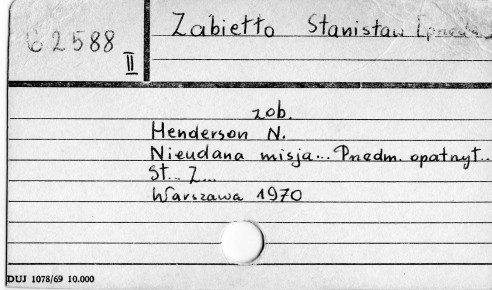 62588
II
Zabiełło Stanisław
zob.
Henderson N.
Nieudana misja... Przedm. opatrzył..
St... Z...
Warszawa 1970
DUJ 1078/69 10.000